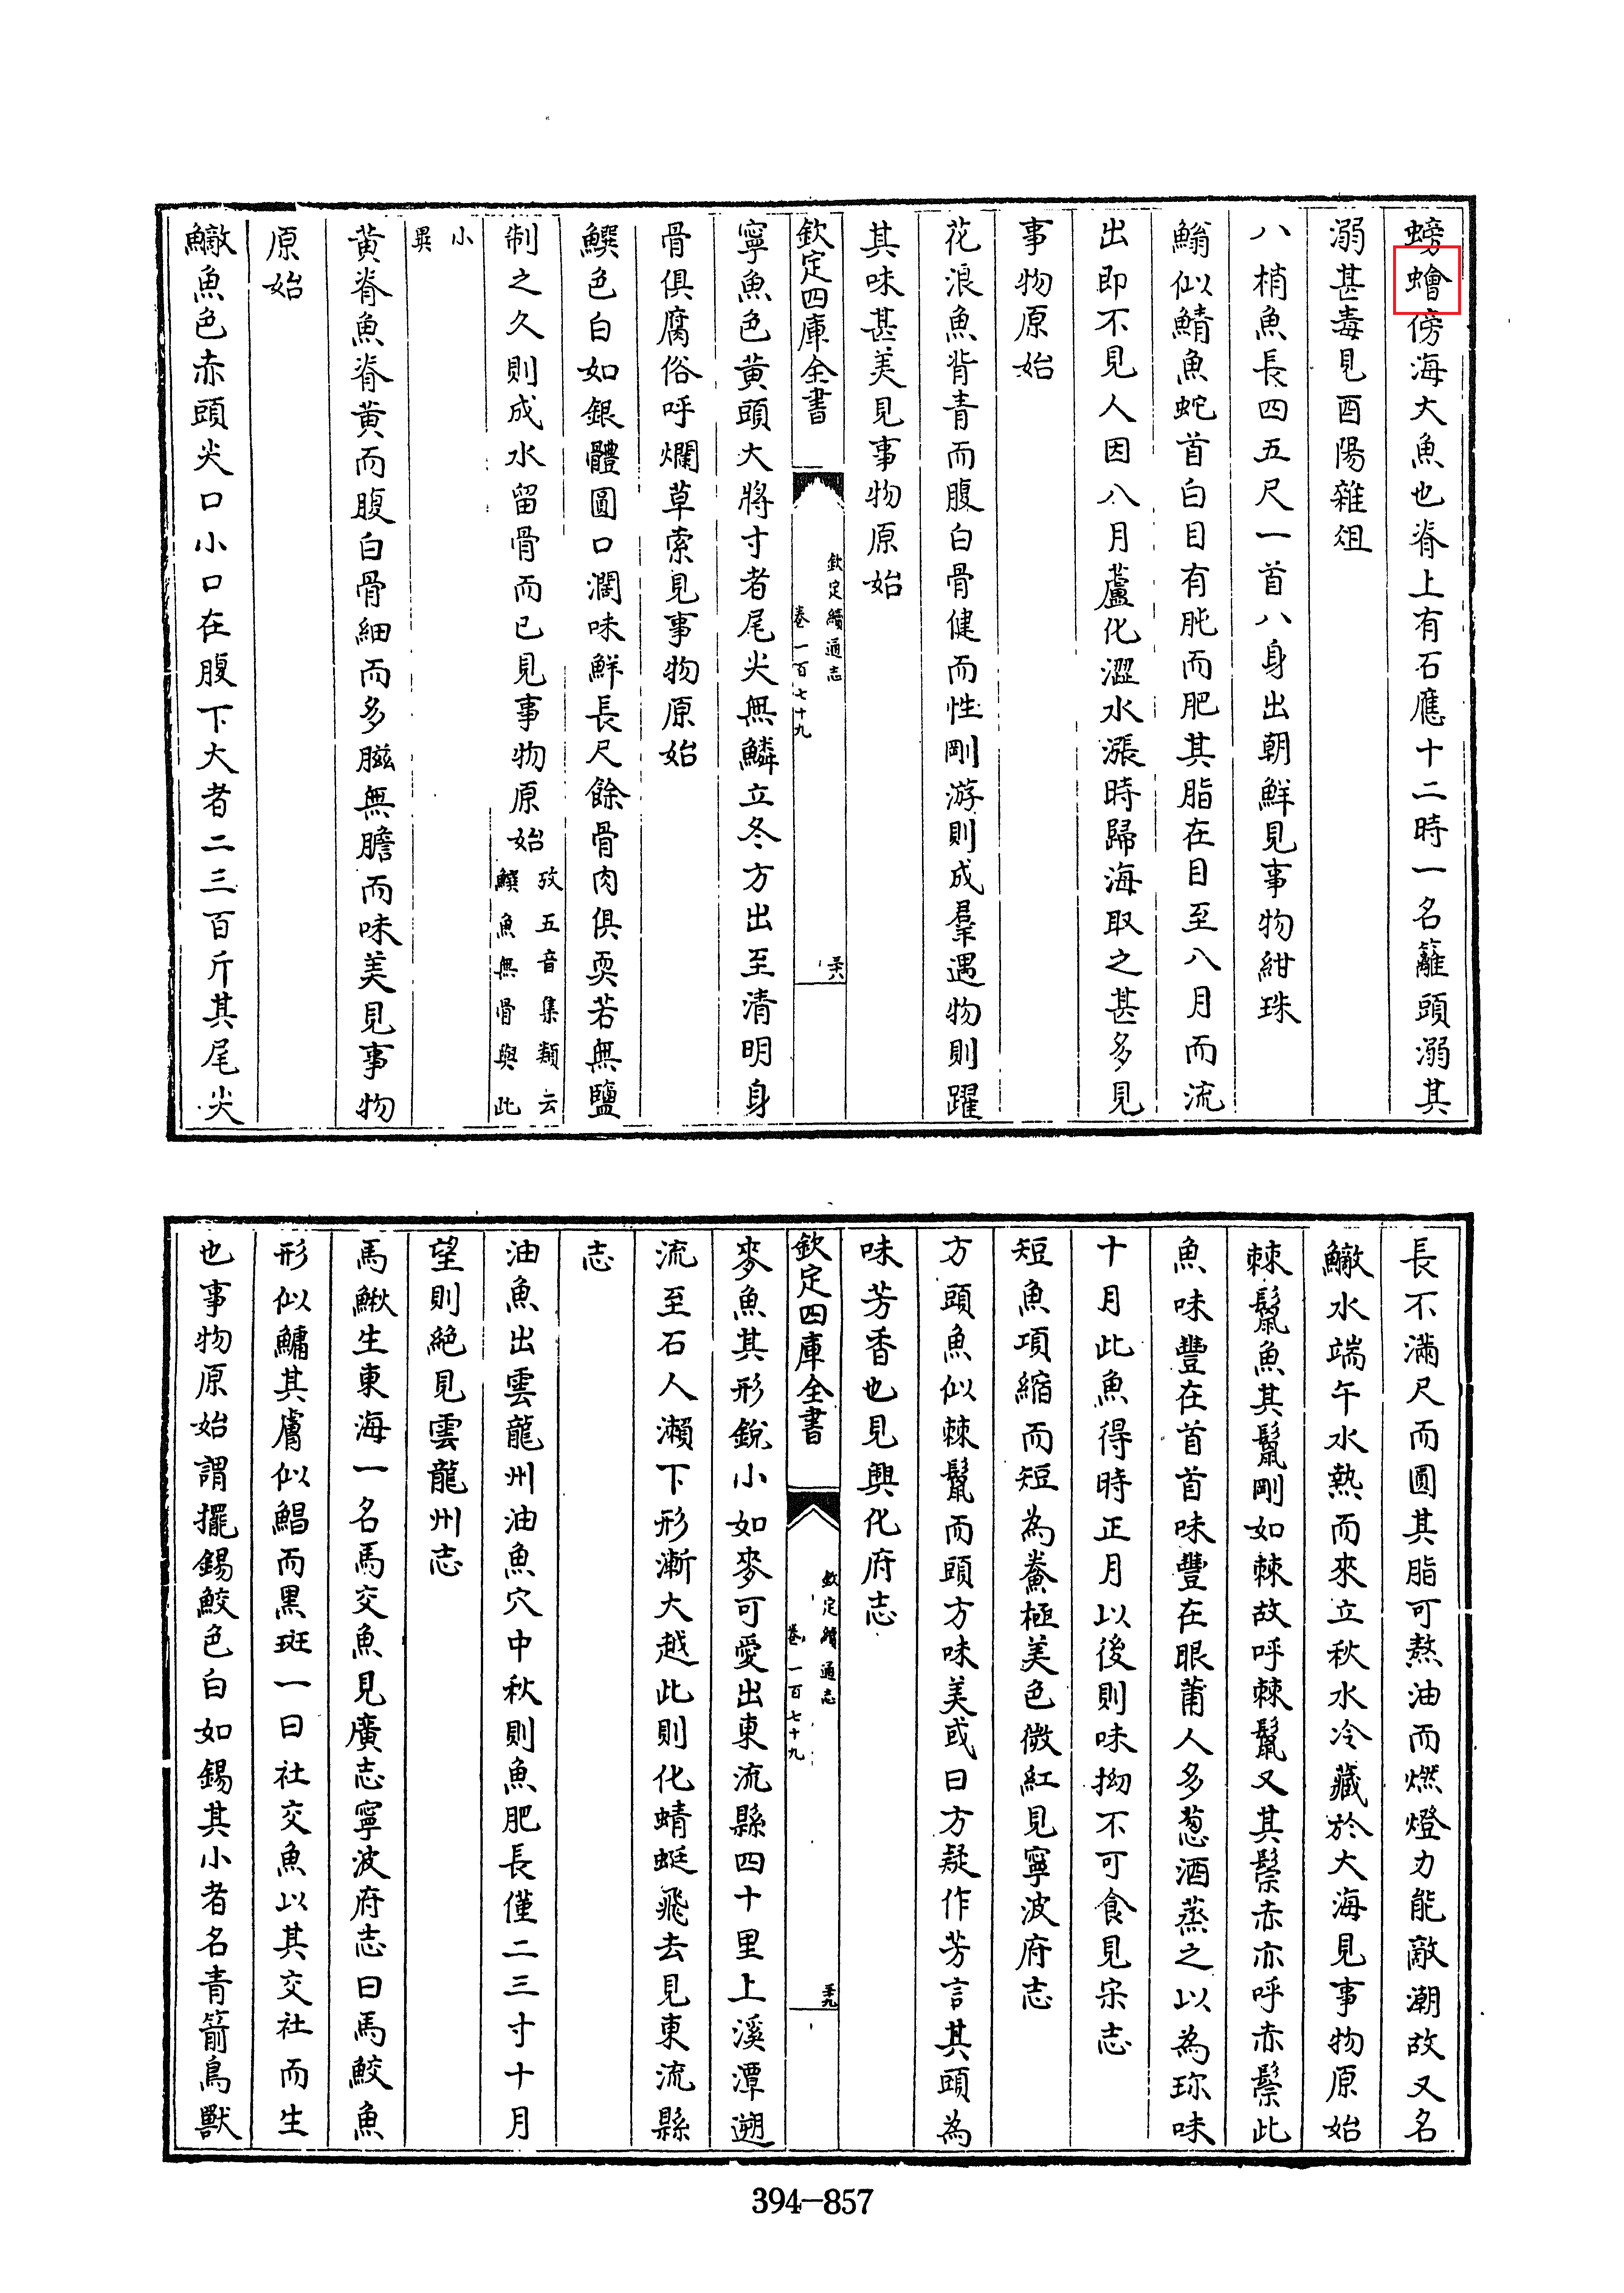 螃䗤傍海大魚也脊上有石應十二時一名籬頭溺其
溺甚毒見酉陽雜俎
八梢魚長四五尺一首八身出朝鮮見事物紺珠
鰯似鯖魚蛇首白目有肫而肥其脂在目至八月而流
出即不見人因八月蘆化澀水漲時歸海取之甚多見
事物原始
花浪魚背青而腹白骨健而性剛游則成羣遇物則躍
其味甚美見事物原始
欽定四庫全書
欽定續通志
卷一百七十九
三十八
寧魚色黄頭大將寸者尾尖無鱗立冬方出至清明身
骨俱腐俗呼爛草索見事物原始
鱀色白如銀體圓口濶味鮮長尺餘骨肉俱耎若無鹽
制之久則成水留骨而已見事物原始
攷五音集類云
鱀魚無骨與此
小
異
黄脊魚脊黄而腹白骨細而多臕無膽而味美見事物
原始
鱤魚色赤頭尖口小口在腹下大者二三百斤其尾尖
長不滿尺而圓其脂可熬油而燃燈力能敵潮故又名
鱤水端午水熱而來立秋水冷藏於大海見事物原始
棘鬣魚其鬣剛如棘故呼棘鬣又其鬃赤亦呼赤鬃此
魚味豐在首首味豐在眼莆人多葱酒蒸之以為珍味
十月此魚得時正月以後則味拗不可食見宋志
短魚項縮而短為鮝極美色微紅見寧波府志
方頭魚似棘鬣而頭方味美或曰方疑作芳言其頭為
味芳香也見興化府志
欽定四庫全書
欽定續通志
卷一百七十九
三十九
麥魚其形銳小如麥可愛出東流縣四十里上溪潭遡
流至石人瀨下形漸大越此則化蜻蜓飛去見東流縣
志
油魚出雲龍州油魚穴中秋則魚肥長僅二三寸十月
望則絕見雲龍州志
馬鰍生東海一名馬交魚見廣志寧波府志曰馬鮫魚
形似鱅其膚似鯧而黑斑一曰社交魚以其交社而生
也事物原始謂擺錫鮫色白如錫其小者名青箭鳥獸
394-857